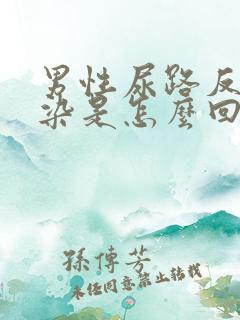 男性尿路反
染是怎麼回
孫傳芳
未经同意禁止转载